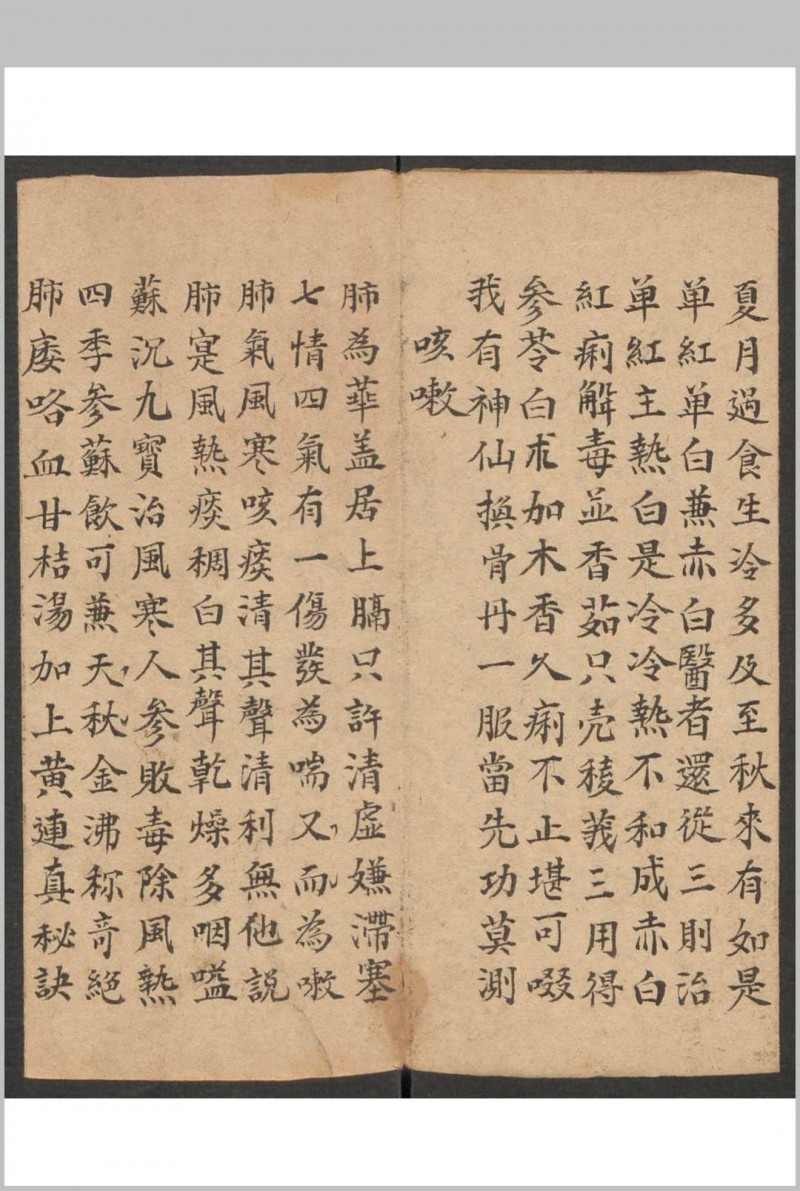 夏月過食生冷多及至秋來有如是
单紅单白兼赤白醫者還從三則治
单紅主熱白是冷冷熱不和成赤白
紅痢解毒並香茹只壳稜莪三用得
參苓白朮加木香久痢不止堪可啜
我有神仙換骨丹一服當先功莫測
咳嗽
肺為華盖居上膈只許清虛嫌滯塞
七情四氣有一傷發為喘又而為嗽
肺氣風寒咳痰清其聲清利無他説
肺寔風熱痰稠白其聲乾燥多咽嗌
蘇沉九寳治風寒人參敗毒除風熱
四季參蘇飲可兼天秋金沸称奇絕
肺痿咯血甘桔湯加上黄連真秘訣